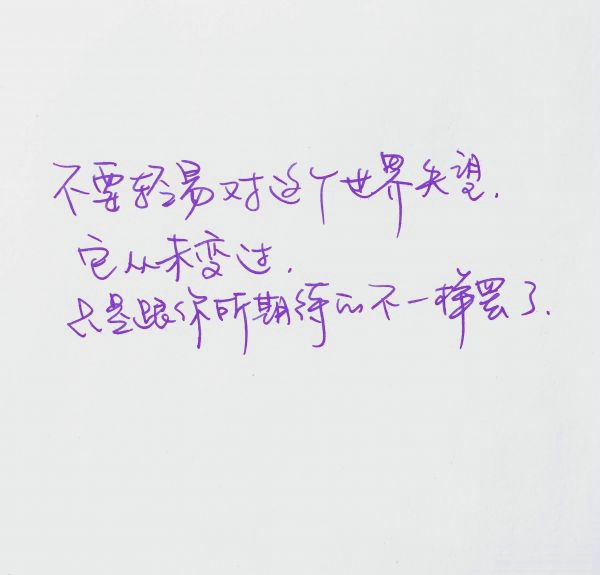 不要轻易对这个世界失望.
它从未变过.
只是跟你所期待的不一样罢了.